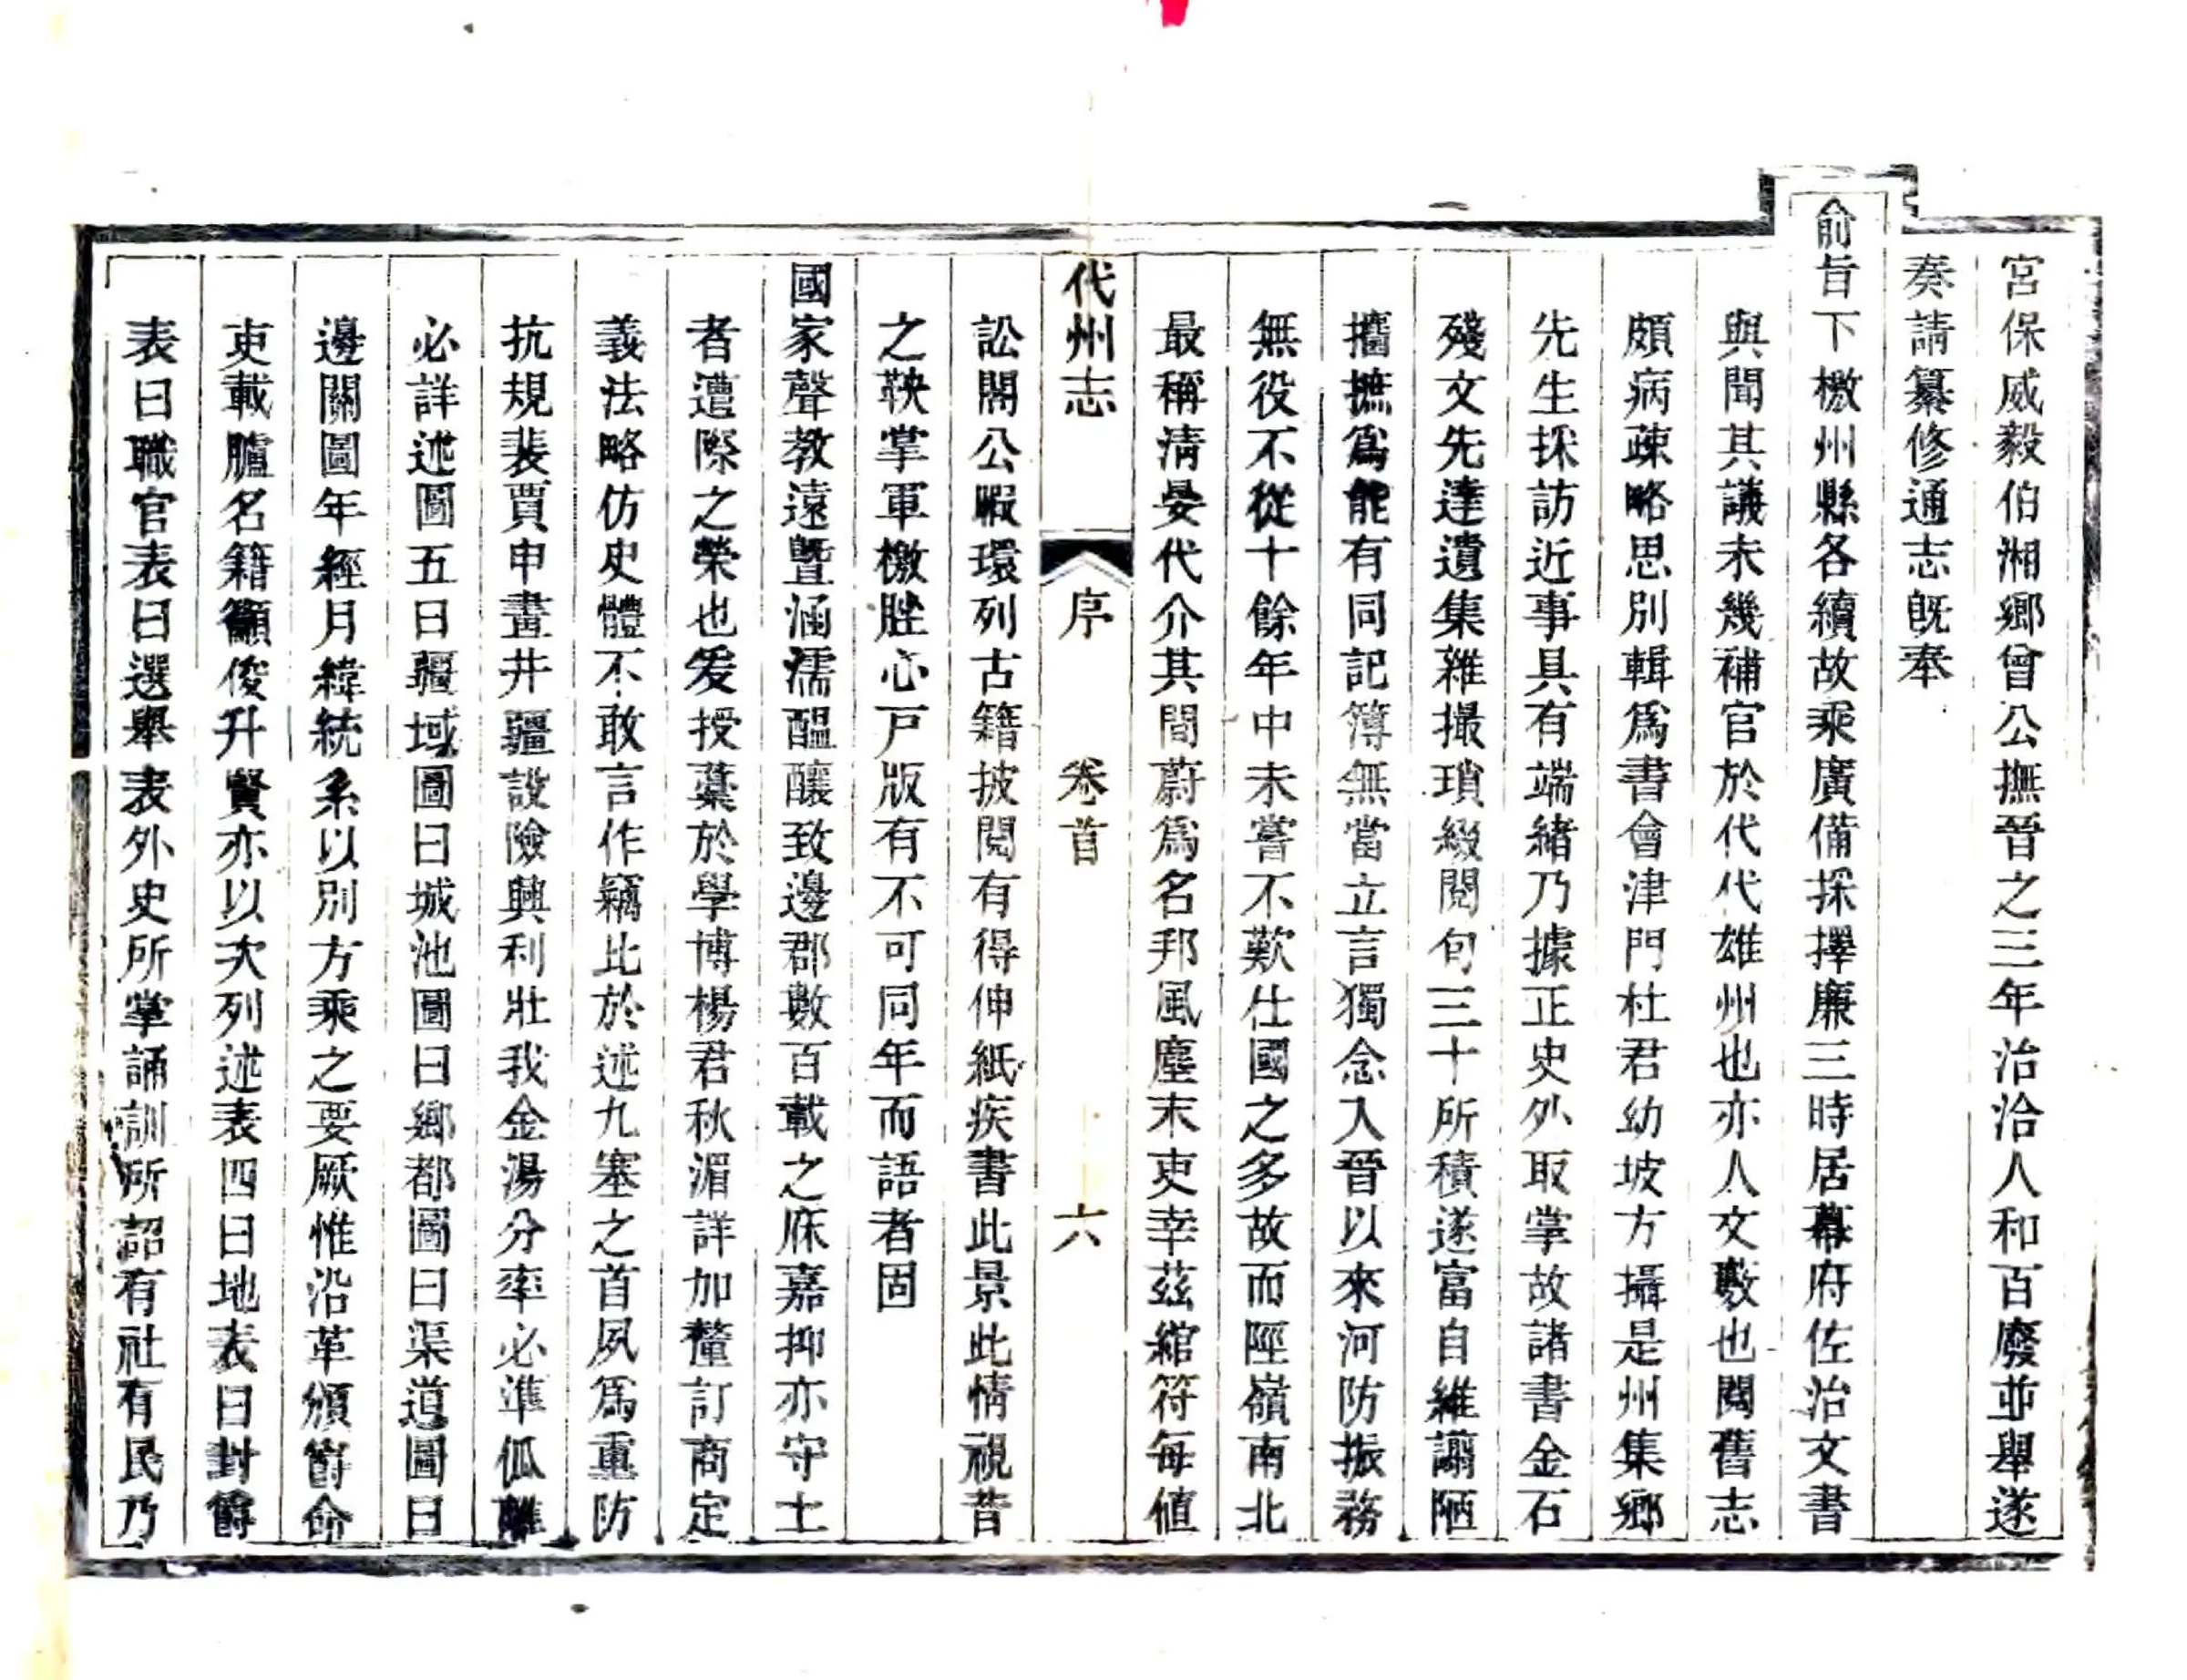 宮保威毅伯湘鄉曾公撫晉之三年治洽人和百廢並舉遂
奏請纂修通志旣奉
俞旨下檄州縣各續故乘廣備採擇廉三時居幕府佐治文書
與聞其議未幾補官於代代雄州也亦人文藪也閱舊志
頗病疎略思別輯爲書會津門杜君幼坡方攝是州集鄉
先生採訪近事具有端緒乃據正史外取掌故諸書金石
殘文先達遺集雜撮瑣綴閱旬三十所積遂富自維謭陋
攟摭爲能有同記簿無當立言獨念入晉以來河防振務
無役不從十餘年中未嘗不歎仕國之多故而陘嶺南北
最稱淸晏代介其間蔚爲名邦風塵末吏幸茲綰符每値
代州志 序 卷首 六
訟閣公暇環列古籍披閱有得伸紙疾書此景此情視昔
之鞅掌軍檄胜心戸版有不可同年而語者固
國家聲教遠曁涵濡醞釀致邊郡數百載之庥嘉抑亦守土
者遭際之榮也爰授藁於學博楊君秋湄詳加釐訂商定
義法略仿史體不敢言作竊比於述九塞之首夙爲重防
抗規裴賈申畫井疆設險興利壯我金湯分率必準伍離
必詳述圖五曰疆域圖曰城池圖曰鄉都圖曰渠道圖曰
邊關圖年經月緯統系以別方乘之要厥惟沿革頒爵命
吏載臚名籍籲俊升賢亦以次列述表四曰地表曰封爵
表曰職官表曰選舉表外史所掌誦訓所詔有社有民乃